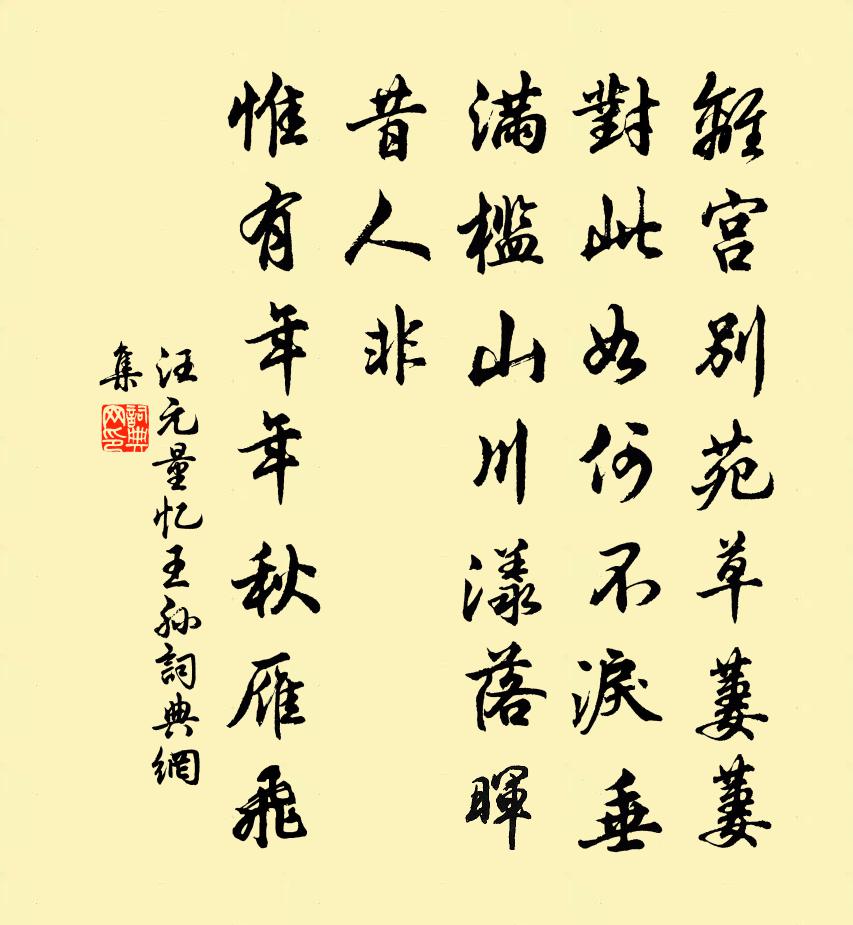 離宮別苑草萋萋
對此如何不淚垂
滿檻山川漾落暉
昔人非
惟有年年秋雁飛
汪元量忆王孙詞典網
集
詞典网印